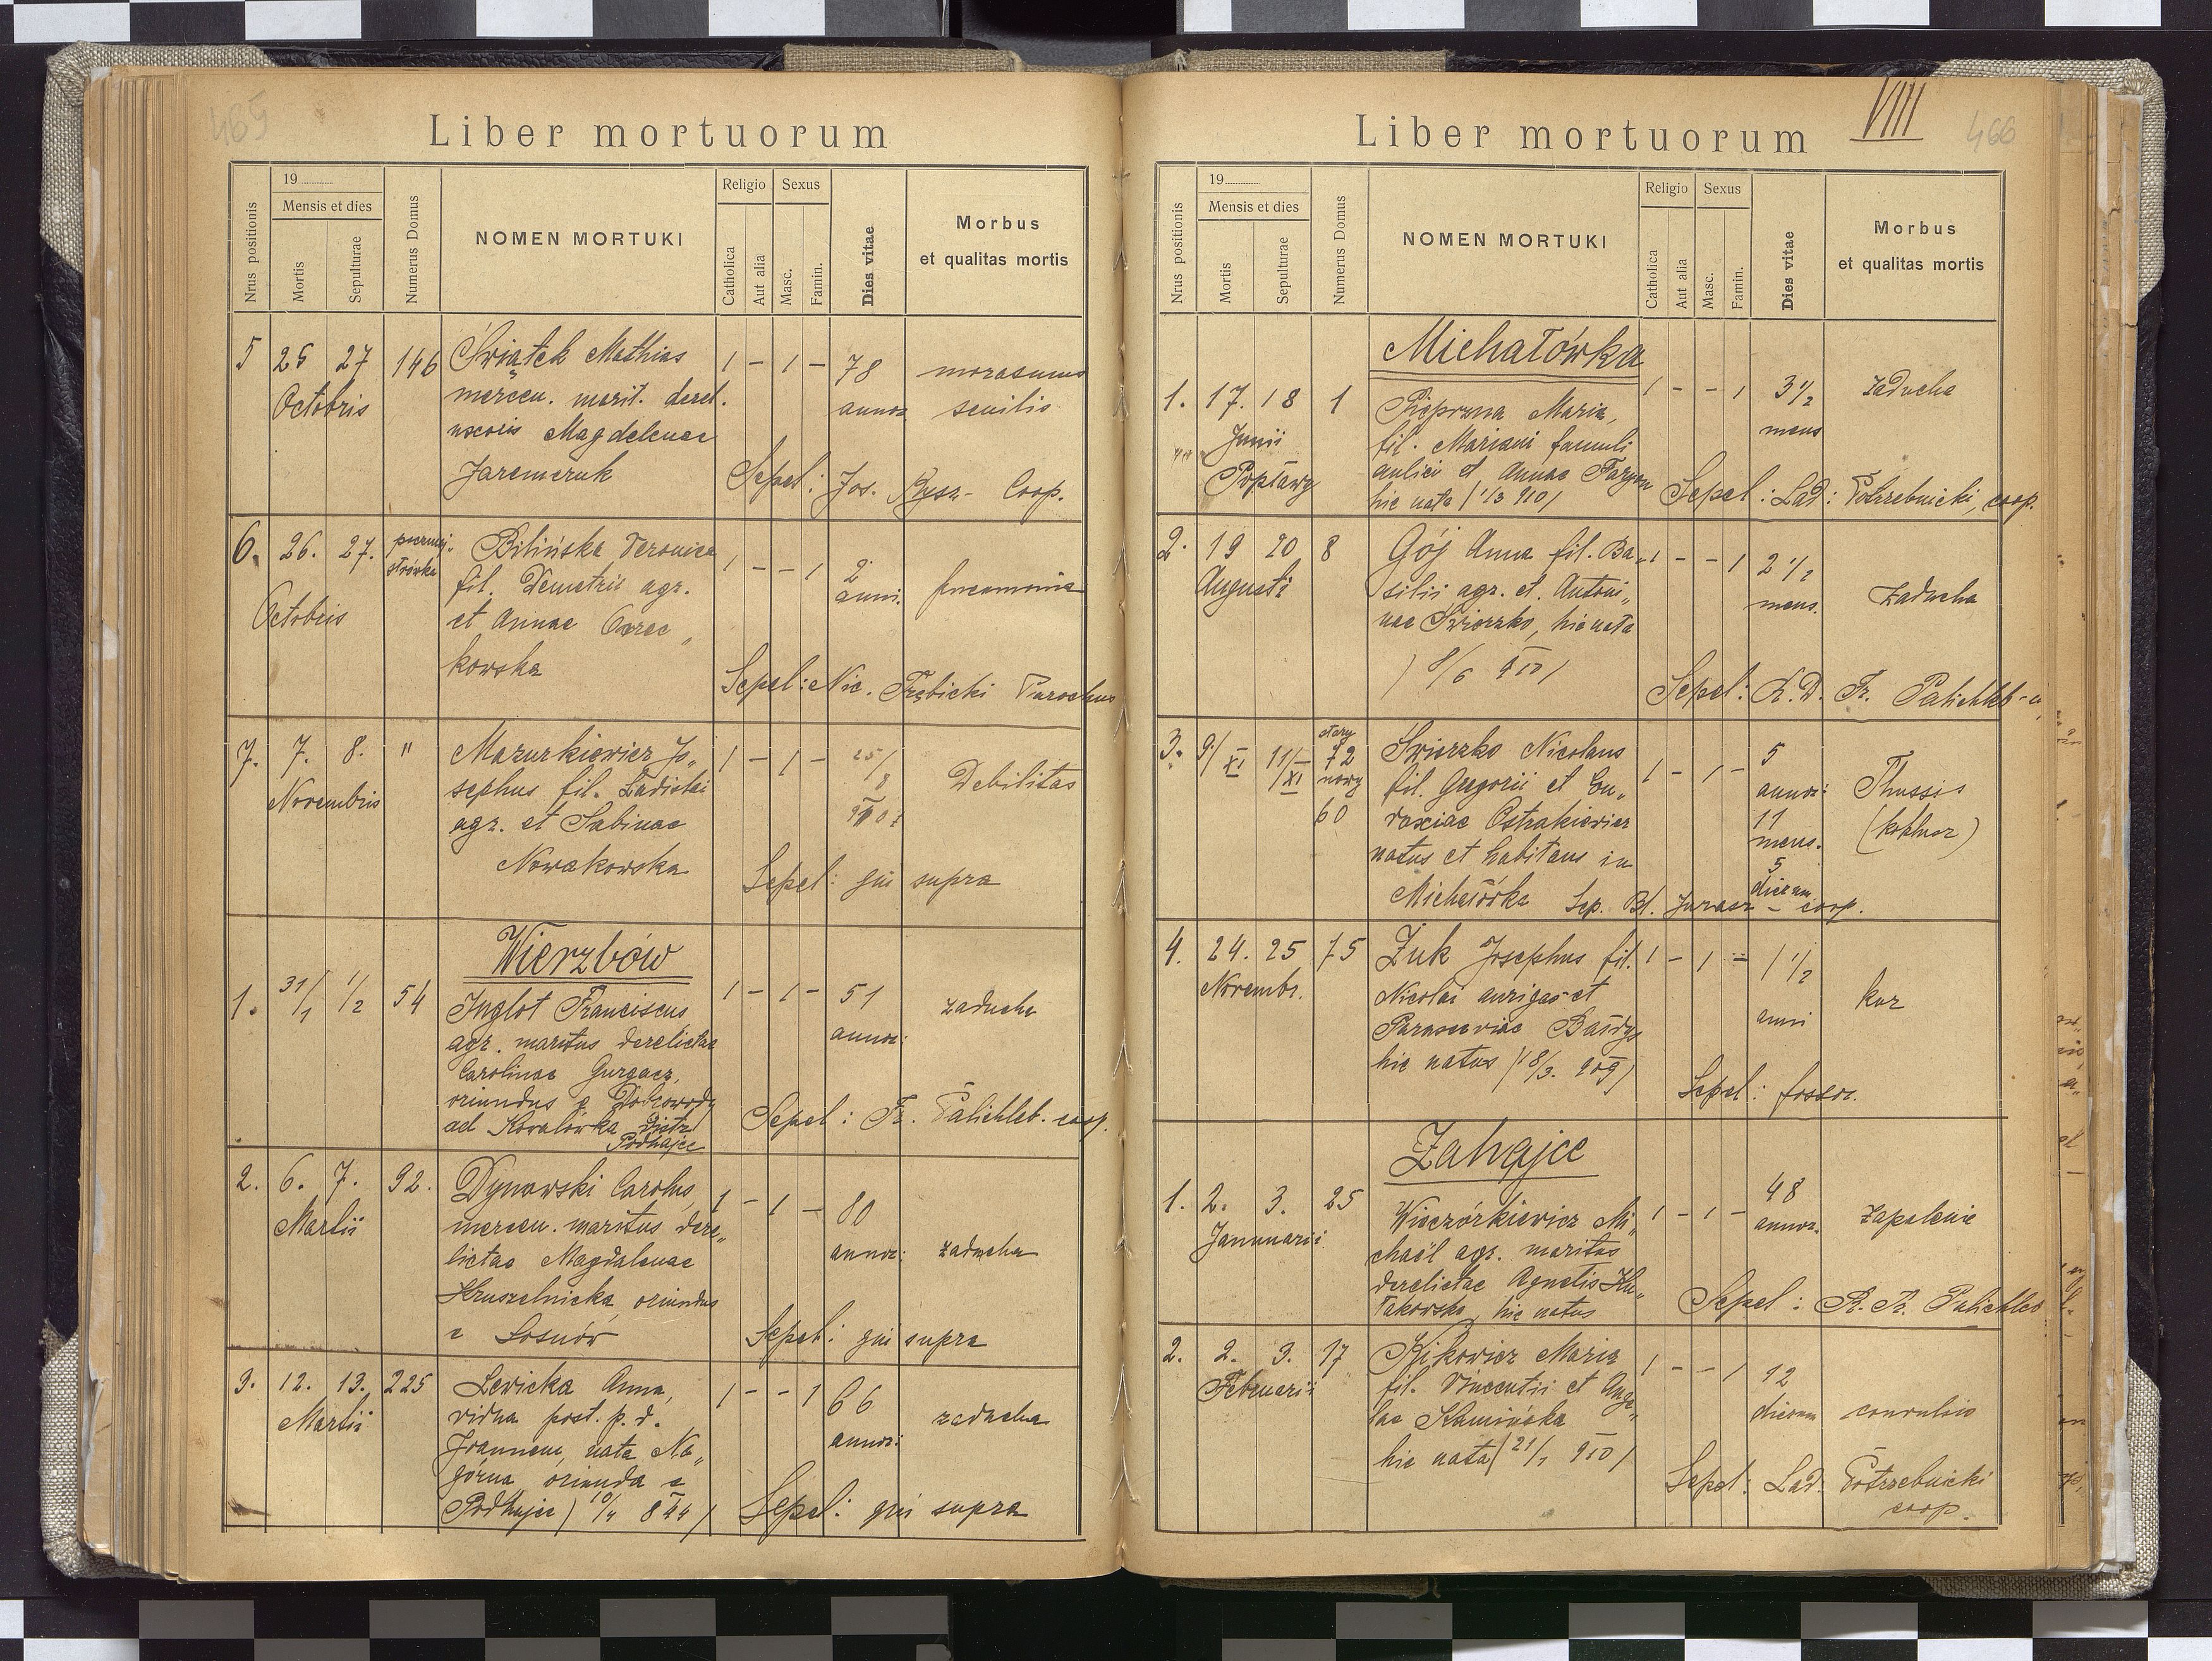 465
Liber mortuorum
Nrus positionis
19
Mensis et dies
Mortis
Sepulturae
Numerus Domus
NOMEN MORTUKI
Religio
Catholica
Aut alia
Sexus
Masc.
Famin.
Dies vitae
Morbus
et qualitas mortis
5 25 27 146 Świątek Mathias 1 – 1 – 78
Octobris
mercen. marit. derel. annor
uxoris Magdelenae senilis
Jaremczuk
Sepel: Jos. Coop.
6. 26. 27. Bilińska Veronica 1 – – 1 2 anni.
Octobris
fil. Demetrii agr.
et Annae
kowska
Sepel: Nic. Trębicki Parochus
7. 7. 8. " Mazurkiewicz Jo„ 1 – 1 –
Novembris
sephus fil. Ladislai Debilitas
agr. et Sabinae
Nowakowska
Sepel: qui supra
Wierzbów
1. 31/1 1/2 54 Inglot Franciscus 1 – 1 – 51 zaducha
agr. maritus derelictae annor:
Carolinae Gurgacz,
oriundus e Dobrowody
ad Kowalówka distr.
Podhajce
Sepel: Fr. Palichleb. coop.
2. 6. 7. 92. Dynowski Carolus, 1 – 1 – 80
Martii
mercen. maritus dere„
lictae Magdalenae annor: zaducha
Hruszelnicka, oriundus
e Sosnów
Sepel: qui supra
3. 12. 13. 225 Lewicka Anna, 1 – – 1 66
Martii
vidua post. p. d. zaducha
Joannem, nata Na„ annor:
górna oriunda e
Podhajce / 10/4 844 /
Sepel: qui supra
VIIII
466
Liber mortuorum
Nrus positionis
19
Mensis et dies
Mortis
Sepulturae
Numerus Domus
NOMEN MORTUKI
Religio
Catholica
Aut alia
Sexus
Masc.
Famin.
Dies vitae
Morbus
et qualitas mortis
Michałówka
1. 17. 18 1 Pieprzna Maria, 1 – – 1 3 1/2 zaducha
Junii
fil. Mariani famuli mens
Popławy
aulici et Annae
hic nata / 1/3 910 /
Sepel: Lad: Potrzebnicki, coop.
2. 19 20 8 Gój Anna fil. Ba„ 1 – – 1 2 1/2
Augusti
silii agr. et Antoni„ mens. Zaducha
nae Świerzko, hic nata
/ 8/6 910 /
Sepel: R.D. Fr. Palichleb
3. 9/XI 11/XI stary 72 nowy 60 Świerzko Nicolaus 1 – 1 – 5
fil. Gregorii et Eu„ annor: Thussis
doxiae Ostrakiewicz 11 mens. (koklusz)
natus et habitans in 5 dierum
Michałówka Sep. Bl. Jurasz – coop.
4. 24. 25 75 Żuk Josephus fil. 1 – 1 – 1 1/2
Novembr.
Nicolai aurigae et anni kur
Parasceviae Bałdys
hic natus / 18/3. 909 /
Sepel: fossor.
Zahajce
1. 2. 3. 25 Wieczórkiewicz Mi„ 1 – 1 – 48 annor. Zapalenie
Januarii
chaël agr. maritus
derelictae Agnetis Ku„
łakowska, hic natus
Sepel: Palichleb
2. 2. 3. 17 Kikowicz Maria 1 – – 1 12
Februarii
fil. Vincentii et Ange„ dierum convulsio
lae Kamińska
hic nata / 21/1 910 /
Sepel: Lad. Potrzebnicki
coop.